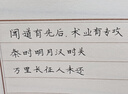 闻道有先后,术业有专攻
秦时明月汉时关
万里长征人未还